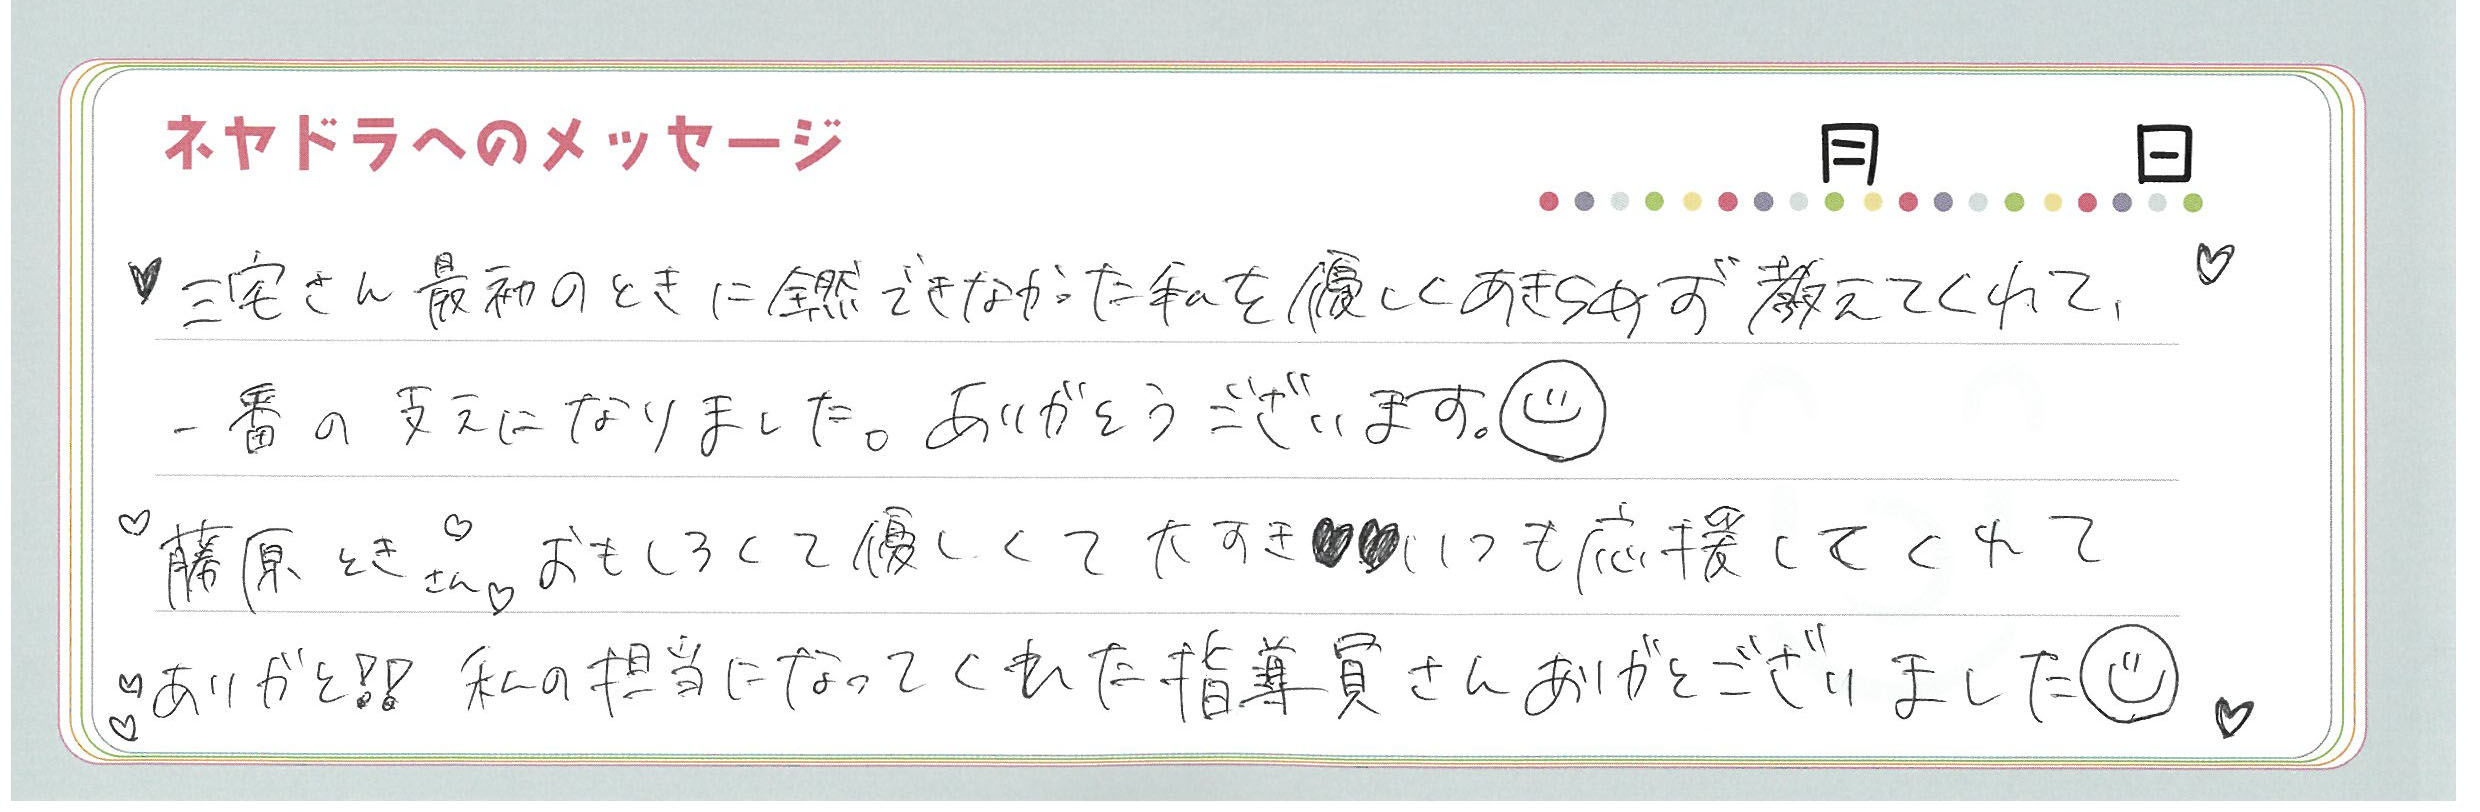 ネヤドラへのメッセージ
月 日
三宅さん最初のときに全然できなかった私を優しくあきらめず教えてくれて、
一番の支えになりました。ありがとうございます。
藤原ときさん おもしろくて優しくて大すき♥♥いつも応援してくれて
ありがと!! 私の担当になってくれた指導員さんありがとございました